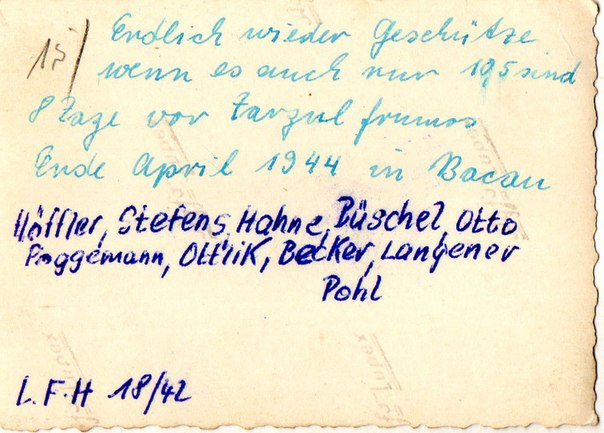 15)
Endlich wieder Geschütze
wenn es auch nur 10,5 sind
8 Tage vor Tarzul frumos
Ende April 1944 in Bacau
Höffler, Stefens, Hahne, Büschel, Otto
Poggemann, Ottlik, Becker, Langener
Pohl
L.F.H 18/42